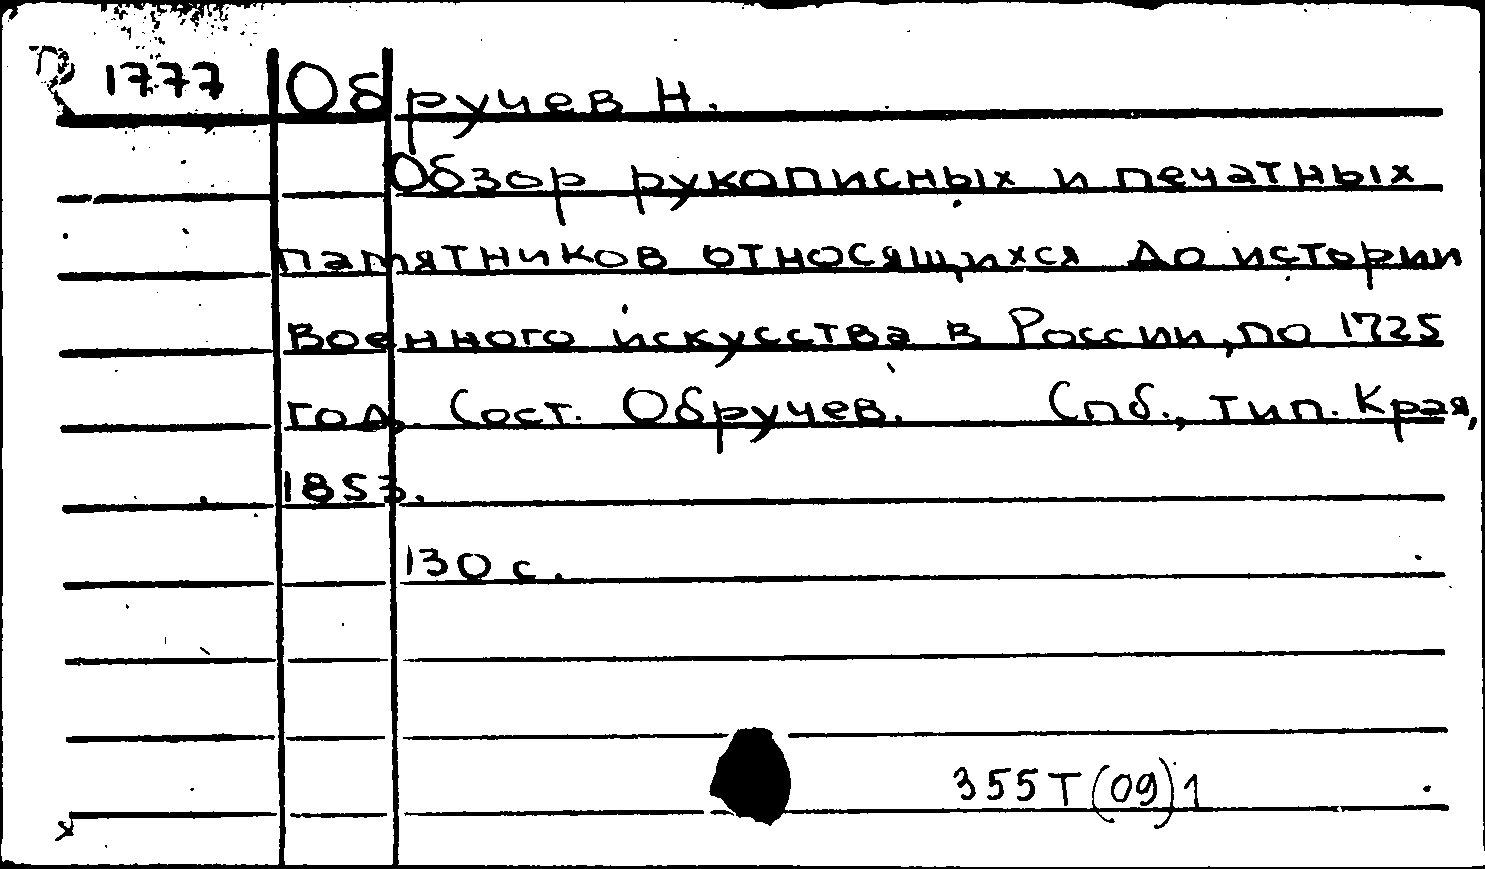 1777 Обручев Н.
Обзор рукописных и печатных
памятников относящихся до истории
военного искусства в России, по 1725
год. Сост. Обручев. Спб., тип. Края,
1853.
130 с.
355Т(09)1